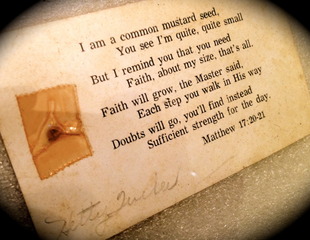 I am a common mustard seed,
You see I'm quite, quite small
But I remind you that you need
Faith, about my size, that's all.
Faith will grow, the Master said,
Each step you walk in His way
Doubts will go, you'll find instead
Sufficient strength for the day.
Matthew 17:20-21